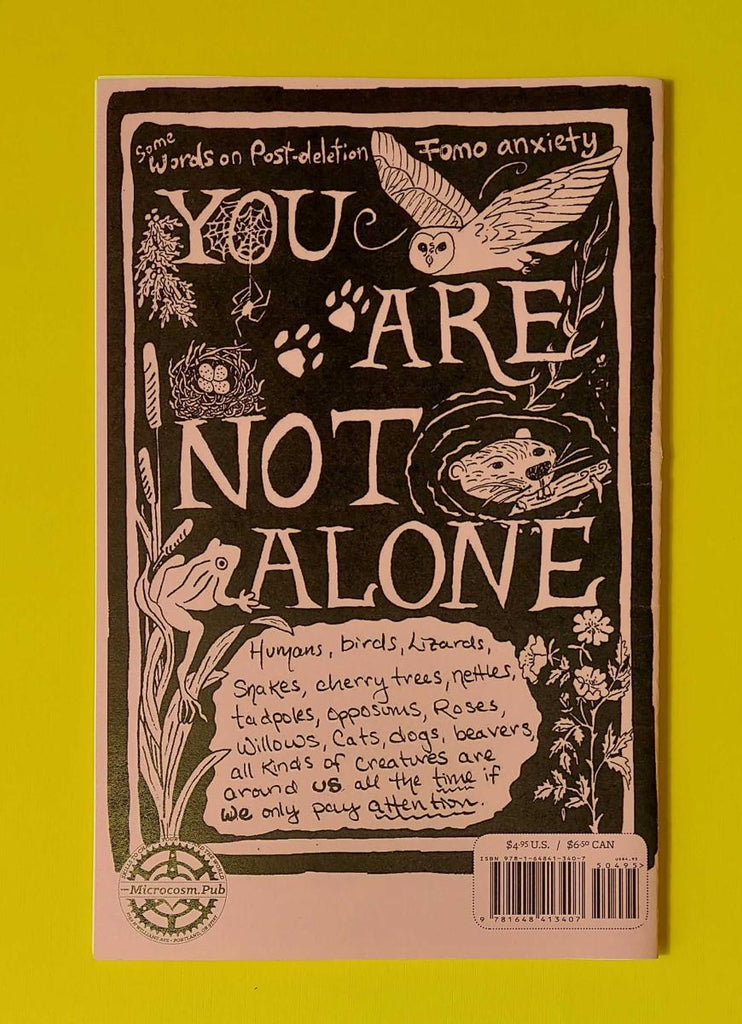 Some Words on Post-deletion Fomo anxiety
YOU
ARE
NOT
ALONE
Humans, birds, Lizards,
Snakes, cherry trees, nettles,
tadpoles, opposums, Roses,
Willows, Cats, dogs, beavers,
all Kinds of creatures are
around us all the time if
we only pay attention.
Microcosm.Pub
$4.95 U.S. / $6.50 CAN
ISBN 978-1-64841-340-7
50495>
9 781648 413407